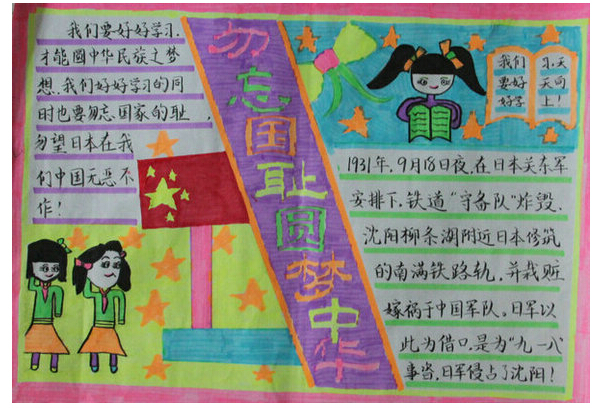 我们要好好学习.
才能圆中华民族之梦
想.我们好好学习的同
时也要勿忘国家的耻,
勿望日本在我
们中国无恶不
作！
勿忘国耻圆梦中华
我们
要好
好学
习.天
天向
上！
1931年.9月18日夜.在日本关东军
安排下.铁道“守备队”炸毁.
沈阳柳条湖附近日本修筑
的南满铁路轨.并栽赃
嫁祸于中国军队。日军以
此为借口.是为“九一八
事当.日军侵占了沈阳！